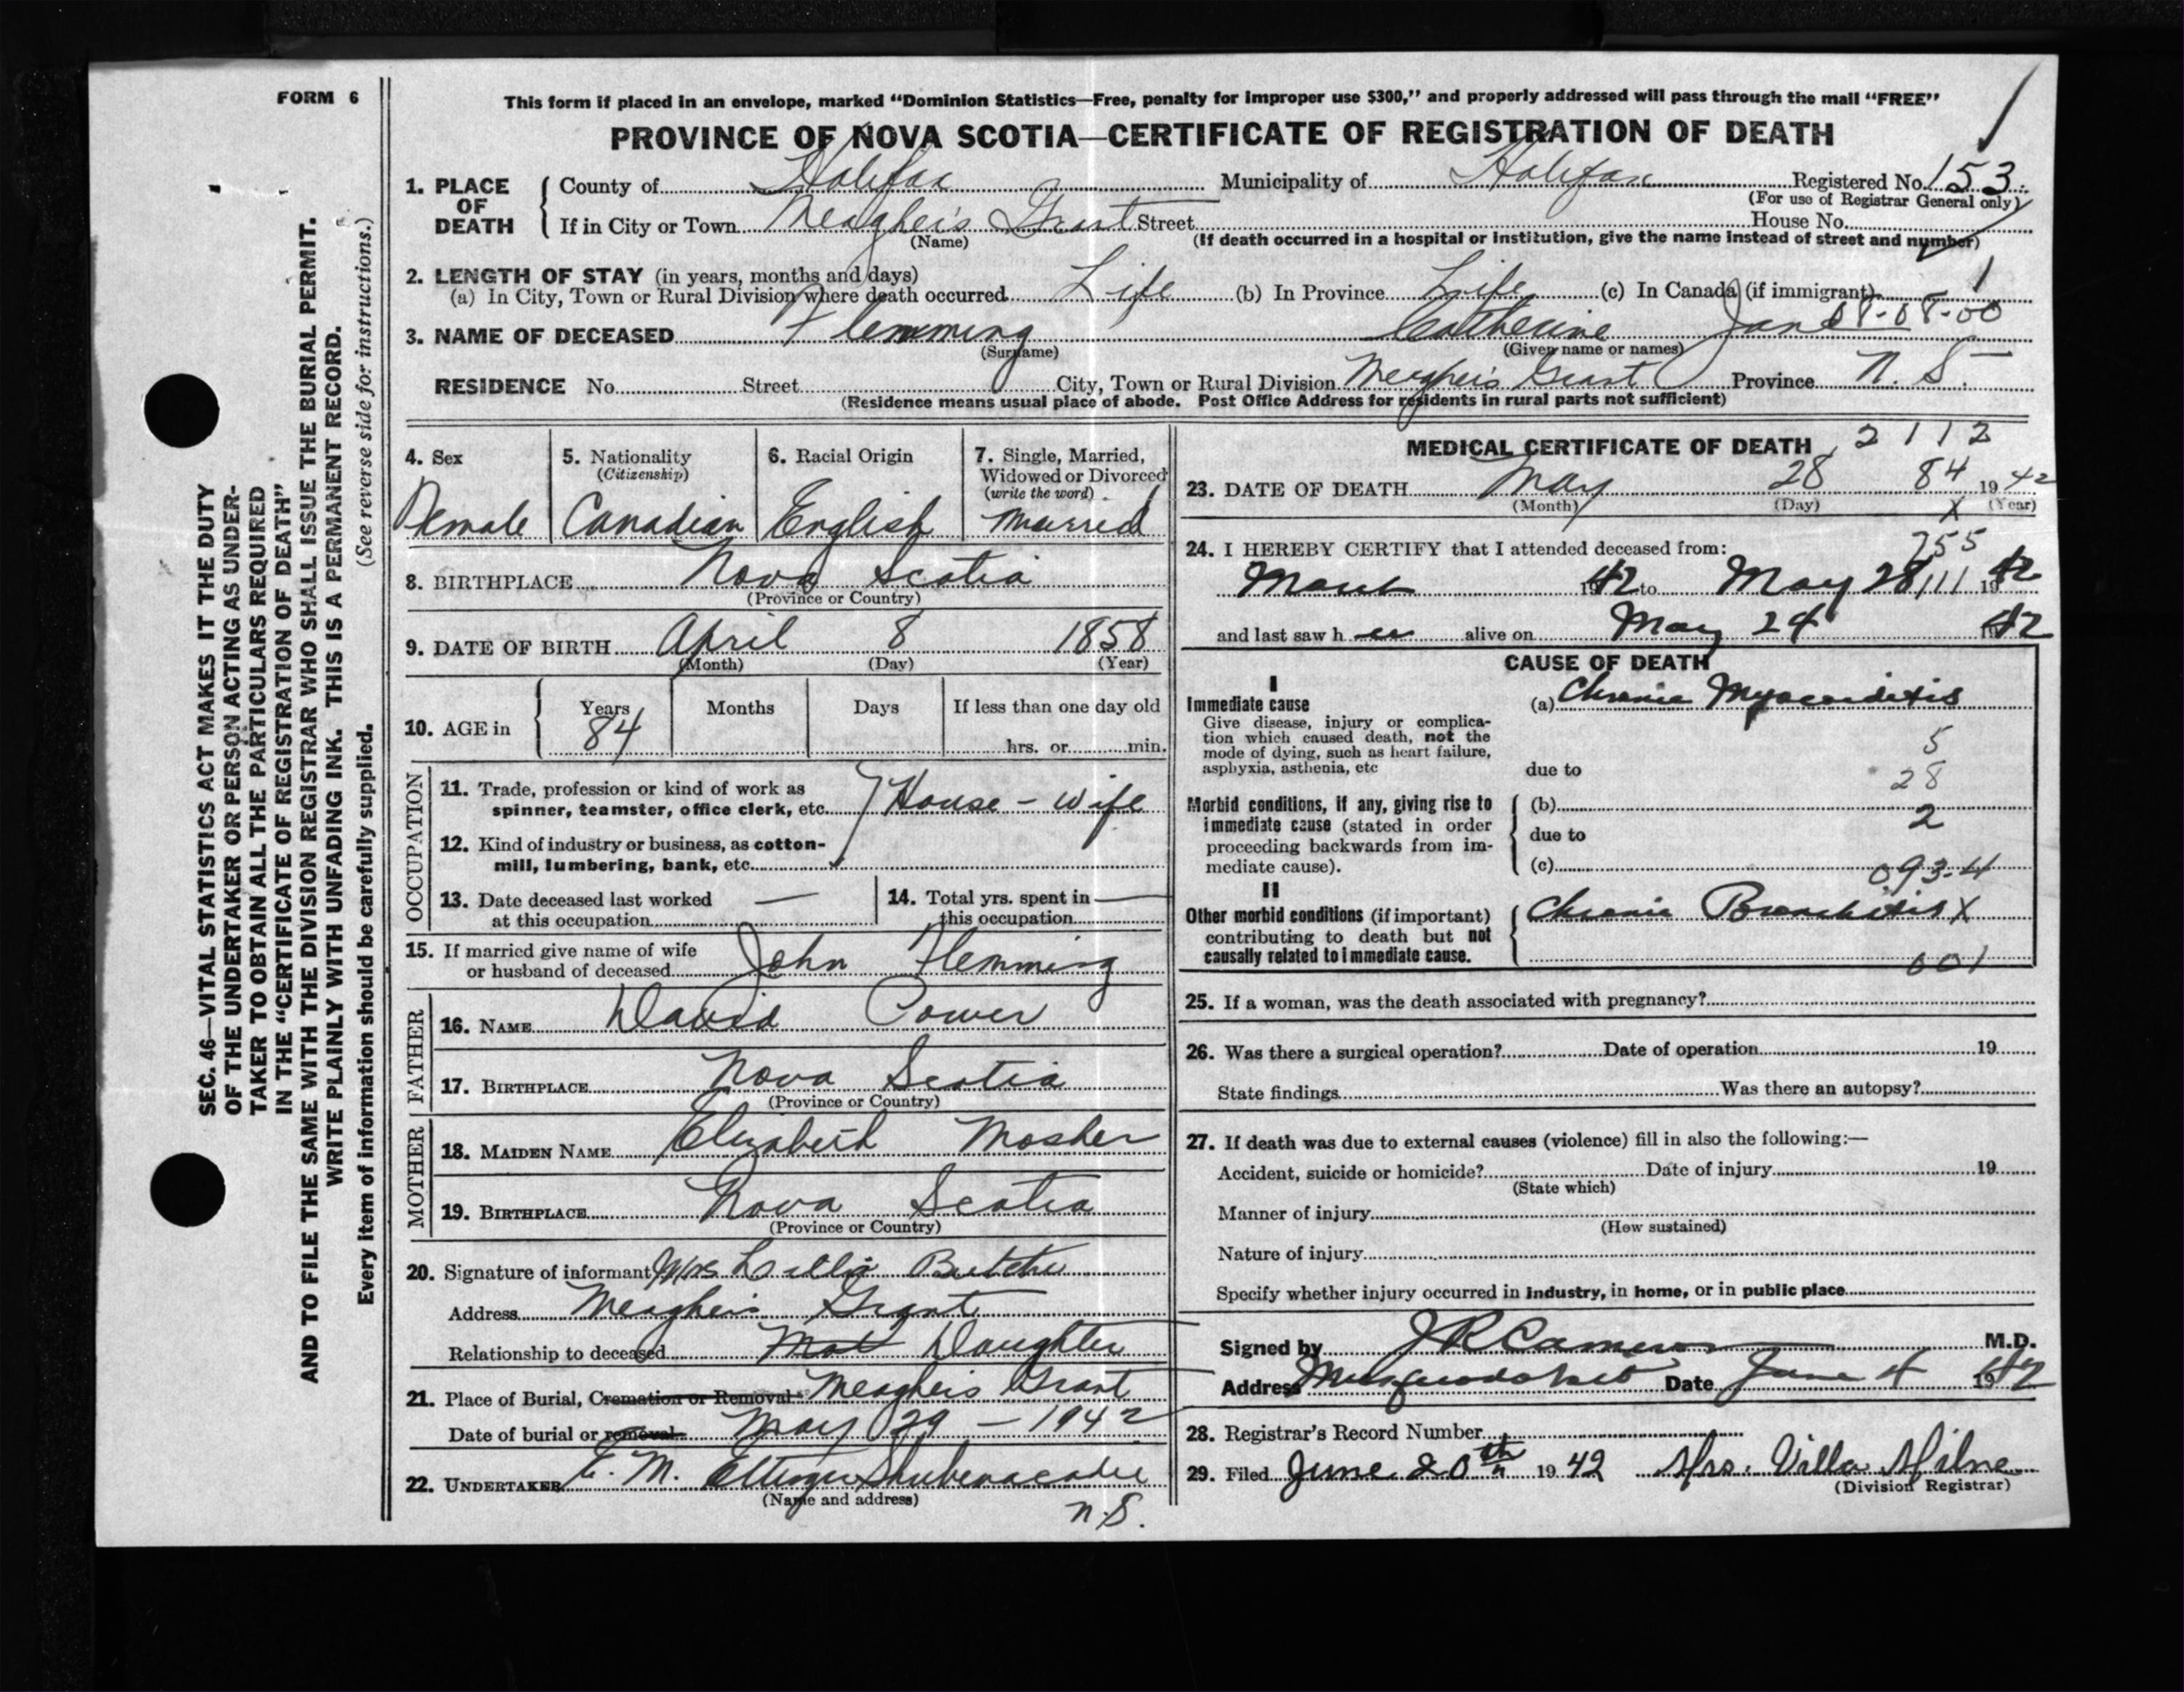 FORM 6
This form if placed in an envelope, marked "Dominion Statistics—Free, penalty for improper use $300," and properly addressed will pass through the mail "FREE"
PROVINCE OF NOVA SCOTIA—CERTIFICATE OF REGISTRATION OF DEATH
SEC. 46—VITAL STATISTICS ACT MAKES IT THE DUTY
OF THE UNDERTAKER OR PERSON ACTING AS UNDER-
TAKER TO OBTAIN ALL THE PARTICULARS REQUIRED
IN THE "CERTIFICATE OF REGISTRATION OF DEATH"
AND TO FILE THE SAME WITH THE DIVISION REGISTRAR WHO SHALL ISSUE THE BURIAL PERMIT.
WRITE PLAINLY WITH UNFADING INK. THIS IS A PERMANENT RECORD.
Every item of information should be carefully supplied. (See reverse side for instructions.)
1. PLACE OF DEATH County of Halifax Municipality of Halifax Registered No. 153
(For use of Registrar General only)
If in City or Town Meagher's Grant Street House No.
(Name) (If death occurred in a hospital or institution, give the name instead of street and number)
2. LENGTH OF STAY (in years, months and days)
(a) In City, Town or Rural Division where death occurred Life (b) In Province Life (c) In Canada (if immigrant) 1
08-08-00
3. NAME OF DECEASED Flemming Catherine Jane
(Surname) (Given name or names)
RESIDENCE No. Street City, Town or Rural Division Meagher's Grant Province N. S.
(Residence means usual place of abode. Post Office Address for residents in rural parts not sufficient)
4. Sex 5. Nationality 6. Racial Origin 7. Single, Married,
(Citizenship) Widowed or Divorced
(write the word)
Female Canadian English Married
8. BIRTHPLACE Nova Scotia
(Province or Country)
9. DATE OF BIRTH April 8 1858
(Month) (Day) (Year)
10. AGE in Years Months Days If less than one day old
84 hrs. or min.
OCCUPATION
11. Trade, profession or kind of work as
spinner, teamster, office clerk, etc. House-wife
12. Kind of industry or business, as cotton-
mill, lumbering, bank, etc.
13. Date deceased last worked — 14. Total yrs. spent in —
at this occupation this occupation
15. If married give name of wife
or husband of deceased John Flemming
FATHER
16. NAME David Power
17. BIRTHPLACE Nova Scotia
(Province or Country)
MOTHER
18. MAIDEN NAME Elizabeth Mosher
19. BIRTHPLACE Nova Scotia
(Province or Country)
20. Signature of informant Mrs
Address Meagher's Grant
Relationship to deceased Daughter
21. Place of Burial, Cremation or Removal Meagher's Grant
Date of burial or removal May 29 - 1942
22. UNDERTAKER E. M. Ettinger Shubenacadie
(Name and address)
N.S.
MEDICAL CERTIFICATE OF DEATH 2112
23. DATE OF DEATH May 28 84 1942
(Month) (Day) X (Year)
24. I HEREBY CERTIFY that I attended deceased from: 255
March 1942 to May 28, 111 1942
and last saw h er alive on May 24 1942
CAUSE OF DEATH
I
Immediate cause
Give disease, injury or complica-
tion which caused death, not the
mode of dying, such as heart failure,
asphyxia, asthenia, etc
(a) Chronic Myocarditis
5
due to
28
Morbid conditions, if any, giving rise to
immediate cause (stated in order
proceeding backwards from im-
mediate cause).
(b)
2
due to
(c) 093-4
II
Other morbid conditions (if important)
contributing to death but not
causally related to immediate cause.
Chronic Bronchitis X
001
25. If a woman, was the death associated with pregnancy?
26. Was there a surgical operation? Date of operation 19
State findings Was there an autopsy?
27. If death was due to external causes (violence) fill in also the following:—
Accident, suicide or homicide? Date of injury 19
(State which)
Manner of injury
(How sustained)
Nature of injury
Specify whether injury occurred in industry, in home, or in public place
Signed by J R Cameron M.D.
Address Musquodoboit Date June 4 1942
28. Registrar's Record Number
29. Filed June 20th 1942 Mrs. Villa Milne
(Division Registrar)